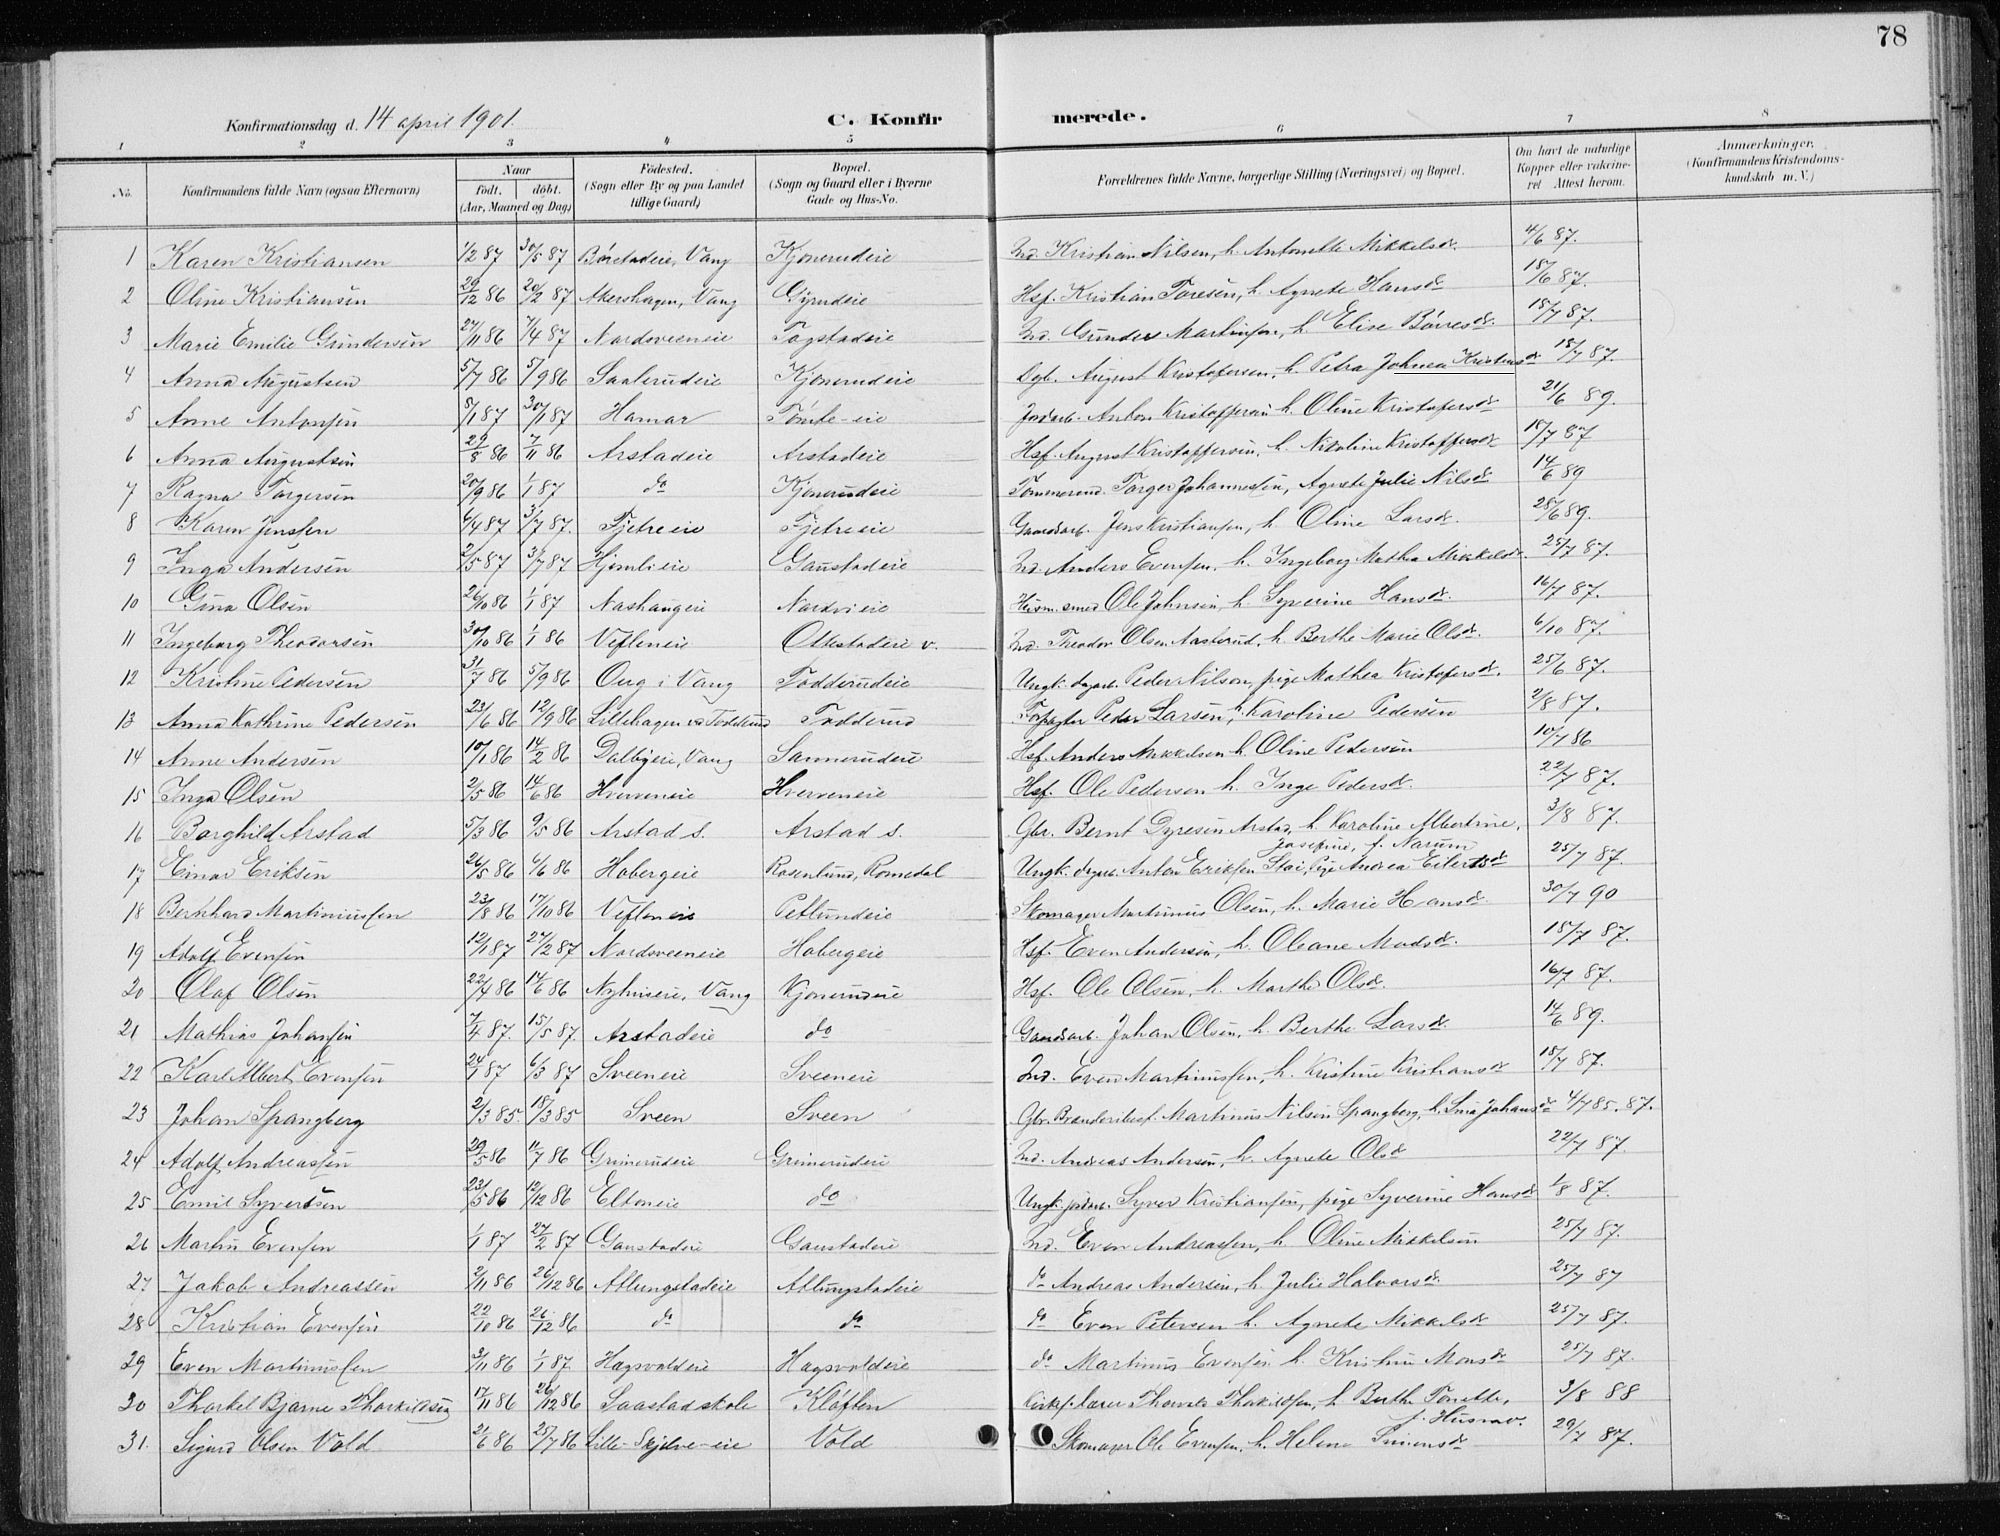 78
Konfirmationsdag d. 14 april 1901. C. Konfirmerede.
1 2 3 4 5 6 7 8
No. Konfirmandens fulde Navn (ogsaa Efternavn) Naar født. døbt. (Aar, Maaned og Dag) Fødested. (Sogn eller By og paa Landet tillige Gaard) Bopæl. (Sogn og Gaard eller i Byerne Gade og Hus-No. Forældrenes fulde Navne, borgerlige Stilling (Næringsvei) og Bopæl. Om havt de naturlige Kopper eller vakcineret Attest herom. Anmærkninger. (Konfirmandens Kristendomskundskab m. V.)
1 Karen Kristiansen 1/2 87 30/5 87 Børstadeie, Vang Kjonerudeie Ind. Kristian Nilsen, h. Antonette Mikkelsdr. 4/6 87.
2 Oline Kristiansen 29/12 86 20/2 87 Akershagen, Vang Gyrudeie Hsf. Kristian Toresen, h. Agnete Hansdr 18/6 87.
3 Marie Emilie Gundersen 27/11 86 7/4 87 Nordsveeneie Fogstadeie Ind. Gunder Martinsen, h. Elise Børresdr. 18/7 87.
4 Anna Augustsen 5/7 86 5/9 86 Saalerudeie Kjonerudeie Dgb. August Kristofersen, h. Petra Johnea Kristensdr 18/7 87.
5 Anne Antonsen 8/1 87 30/1 87 Hamar Tomte-eie Jordarb. Anton Kristoffersen h. Oline Kristofersdr 21/6 89.
6 Anna Augustsen 29/8 86 7/11 86 Arstadeie Arstadeie Hsf. August Kristoffersen, h. Nikoline Kristoffersdr 18/7 87
7 Ragna Torgersen 20/9 86 1/1 87 do Kjonerudeie Tømmermd. Torger Johannessen, Agnete Julie Nilsdr 14/6 89
8 Karen Jenssen 6/4 87 3/7 87. Tjetreeie Tjetreeie Gaardarb. Jens Kristiansen, h. Oline Larsdr. 28/6 89.
9 Inga Andersen 2/5 87 3/7 87 Hjemlieie Gaustadeie Ind. Anders Evensen, h. Ingeborg Mathea Mikkelsdr. 25/7 87.
10 Gina Olsen 26/10 86 1/1 87 Nashaugeie Nordvieie Husm. smed Ole Johnsen, h. Syverine Hansdr. 16/7 87.
11 Ingeborg Theodorsen 30/10 86 1/1 86 Vefleneie Ottestadeie v. Ind. Theodor Olsen Aasterud, h. Berthe Marie Olsdr. 6/10 87.
12 Kristine Pedersen 31/7 86 5/9 86 Oug i Vang Fodderudeie Ungk. dagarb. Peder Nilsen, pige Mathea Kristofersdr. 25/6 87.
13 Anna Kathrine Pedersen 23/6 86 12/9 86 Lillehagen v Fodderud Fodderud Forpagter Peder Larsen, h. Karoline Pedersen 2/8 87.
14 Anne Andersen 10/1 86 14/2 86 Dalbyeie, Vang Sannerudeie Hsf. Anders Mikkelsen h. Oline Pedersen 10/7 86
15 Inga Olsen 2/5 86 14/6 86 Hverveneie Hverveneie Hsf. Ole Pedersen h. Inge Pedersdr. 22/7 87.
16 Borghild Arstad 5/3 86 9/5 86 Arstad s. Arstad s. Gbr. Bernt Dyresen Arstad, h. Karoline Albertine, 3/8 87.
Josefine, f. Narum
17 Einar Eriksen 26/5 86 4/6 86 Hobergeie Rosenlund, Romedal Ungk. dagarb. Anton Eriksen Stai, pige Andrea Eilertsdr 25/7 87.
18 Bernhard Martiniussen 23/8 86 17/10 86 Vefleneie Petlundeie Skomager Martinius Olsen, h. Marie Hansdr 30/7 90
19 Adolf Evensen 12/1 87 27/2 87 Nordsveeneie Hobergeie Hsf. Even Andersen, h. Oleane Madsdr. 18/7 87.
20 Olaf Olsen 22/4 86 14/6 86 Nyhuseie, Vang Kjonerudeie Hsf. Ole Olsen, h. Marthe Olsdr. 16/7 87.
21 Mathias Johansen 7/4 87. 15/5 87. Arstadeie do Gaardsarb. Johan Olsen, h. Berthe Larsdr. 14/6 89.
22 Karl Albert Evensen 24/1 87 6/3 87 Sveeneie Sveeneie Ind. Even Martiniussen, h. Kristine Kristiansdr 18/7 87.
23 Johan Spangberg 2/3 85. 18/3 85 Sveen Sveen Gbr. Brænderibest. Martinus Nilsen Spangberg, h. Lina Johansdr 4/7 85. 87.
24 Adolf Andreassen 29/5 86 11/7 86 Grimerudeie Grimerudeie Ind. Andreas Andersen, h. Agnete Olsdr 22/7 87.
25 Emil Syversen 23/5 86 12/12 86 Eltoneie do Ungk. jordarb. Syver Kristiansen, pige Syverine Hansdr 1/8 87.
26 Martin Evensen 1/1 87 27/2 87 Gaustadeie Gaustadeie Ind. Even Andreassen, h. Oline Mikkelsen 25/7 87.
27 Jakob Andreassen 2/11 86 26/12 86 Atlungstadeie Atlungstadeie do Andreas Andersen, h. Julie Halvorsdr. 25/7 87
28 Kristian Evensen 22/10 86 26/12 86 do do do Even Petersen h. Agnete Mikkelsdr 25/7 87.
29 Even Martiniussen 3/11 86 1/1 87. Hagsvoldeie Hagsvoldeie do Martinus Evensen h. Kristine Monsdr 25/7 87.
30 Thorkel Bjarne Thorkildsen 17/11 86 26/12 86 Saastad skole Kløften Kirkes. lærer Thomas Thorkildsen, h Berthe Tonette, 3/8 88
31. Sigurd Olsen Vold 21/6 86 25/7 86 Lille-Skjelve-eie Vold Skomager Ole Evensen, h. Helene Simensdr 29/7 87.